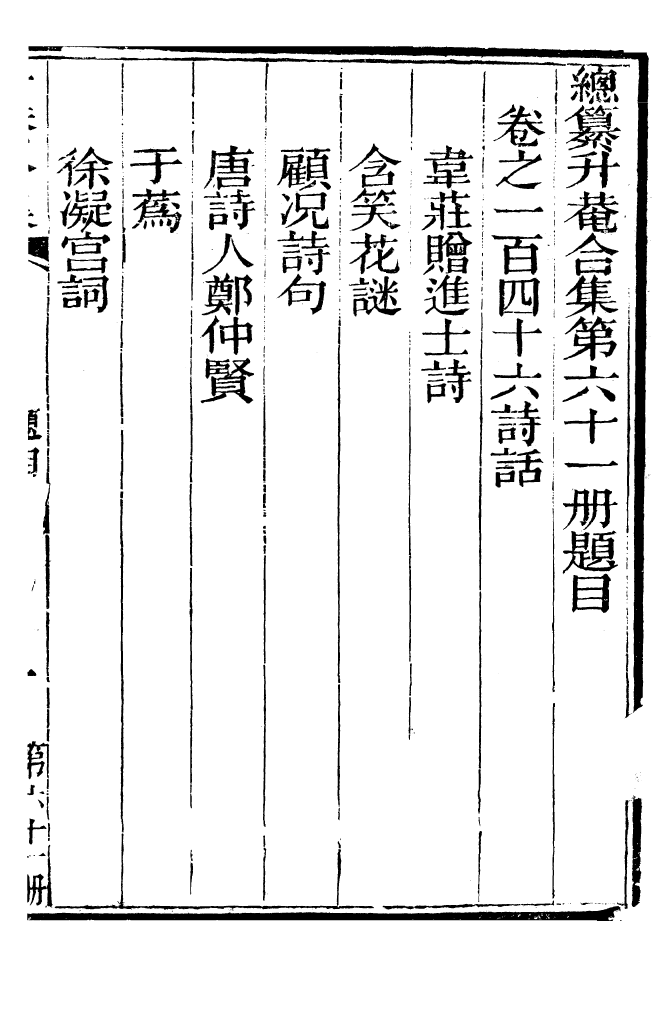 總纂升菴合集第六十一册題目
卷之一百四十六詩話
韋莊贈進士詩
含笑花謎
顧况詩句
唐詩人鄭仲賢
于蔿
徐凝宫詞
題目
第六十一册